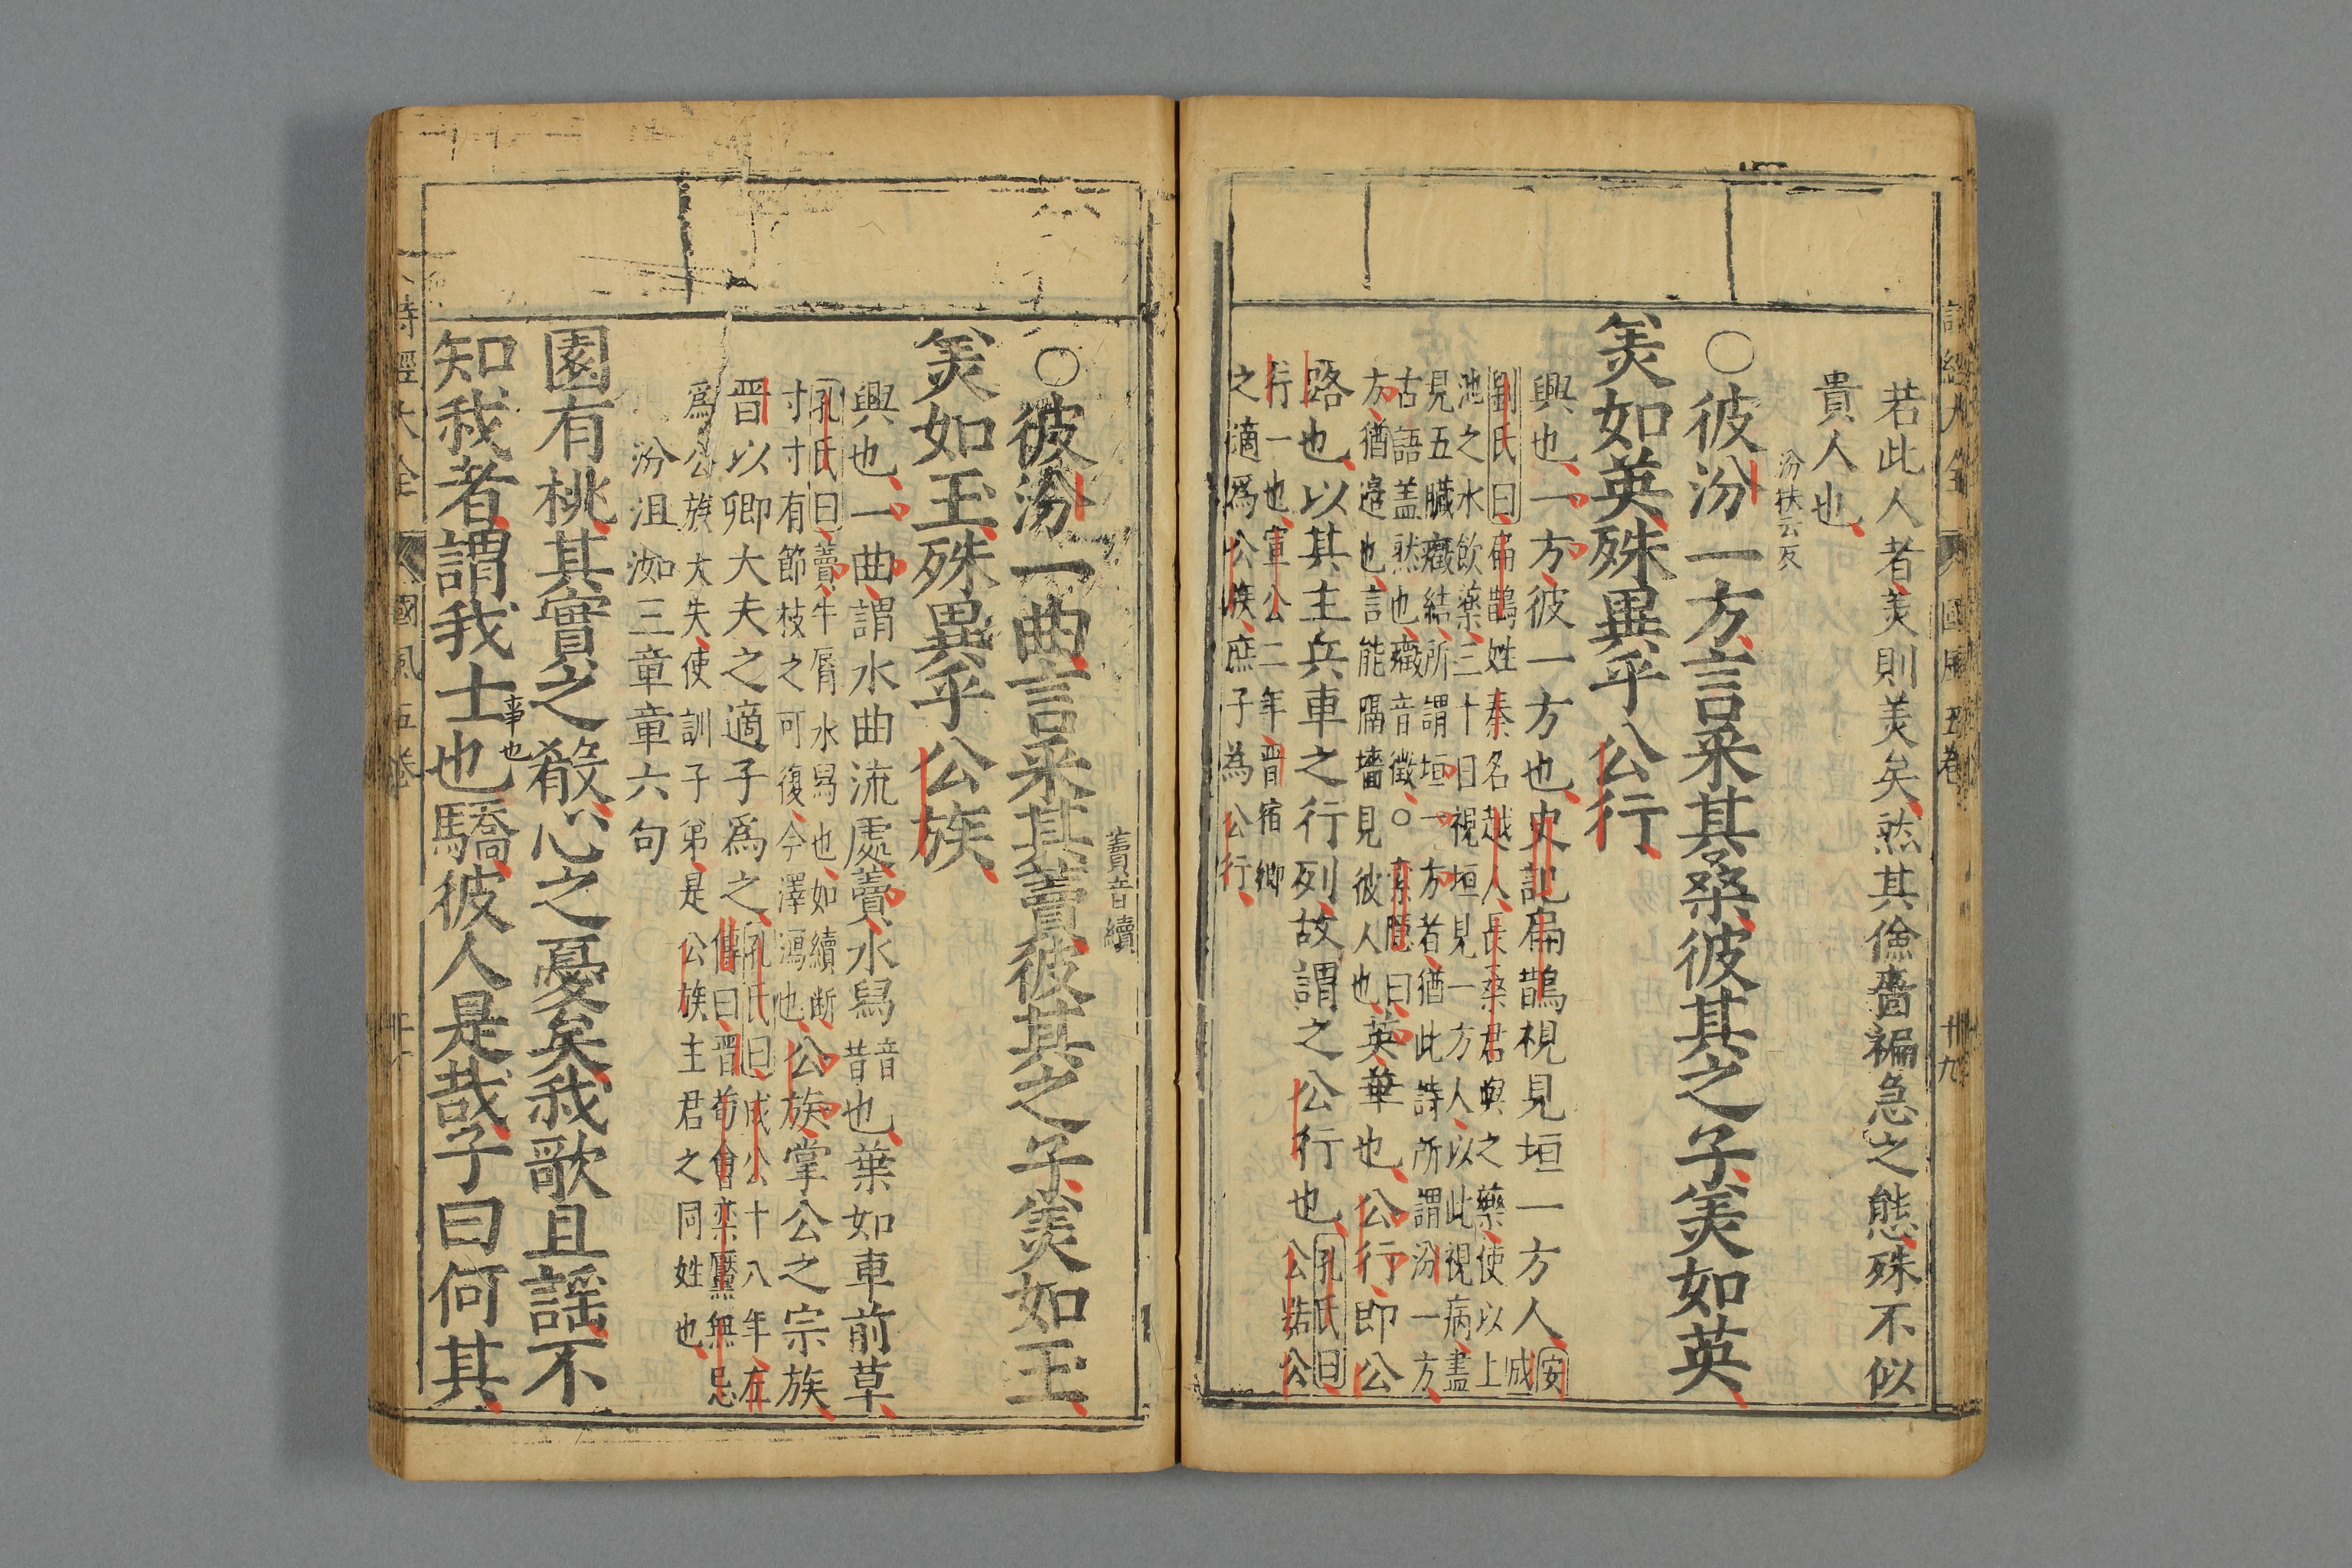 若此人者美則美矣然其儉嗇褊急之態殊不似
貴人也
汾扶云反
○彼汾一方言采其桑彼其之子美如英
美如英殊異乎公行
興也一方彼一方也史記扁鵲視見垣一方人安成
劉氏曰扁鵲姓秦名越人長桑君與之藥使以上
池之水飲藥三十日視垣見一方人以此視病盡
見五臟癥結所謂垣一方者猶此詩所謂汾一方
古語盖然也癥音徵○索隱曰
方猶邉也言能隔墻見彼人也英華也公行即公
路也以其主兵車之行列故謂之公行也孔氏曰公路公
行一也宣公二年晋宿卿
之適爲公族庶子為公行
藚音續
○彼汾一曲言采其藚彼其之子美如玉
美如玉殊異乎公族
興也一曲謂水曲流處藚水舄音昔也葉如車前草
孔氏曰藚牛脣水舄也如續断
寸寸有節枝之可復今澤瀉也公族掌公之宗族
晋以卿大夫之適子爲之孔氏曰成公十八年左傳曰晋荀會欒黶無忌
爲公族大夫使訓子弟是公族主君之同姓也
汾沮洳三章章六句
園有桃其實之殽心之憂矣我歌且謡不
知我者謂我士也驕彼人是哉子曰何其
事也
詩經大全 國風五卷